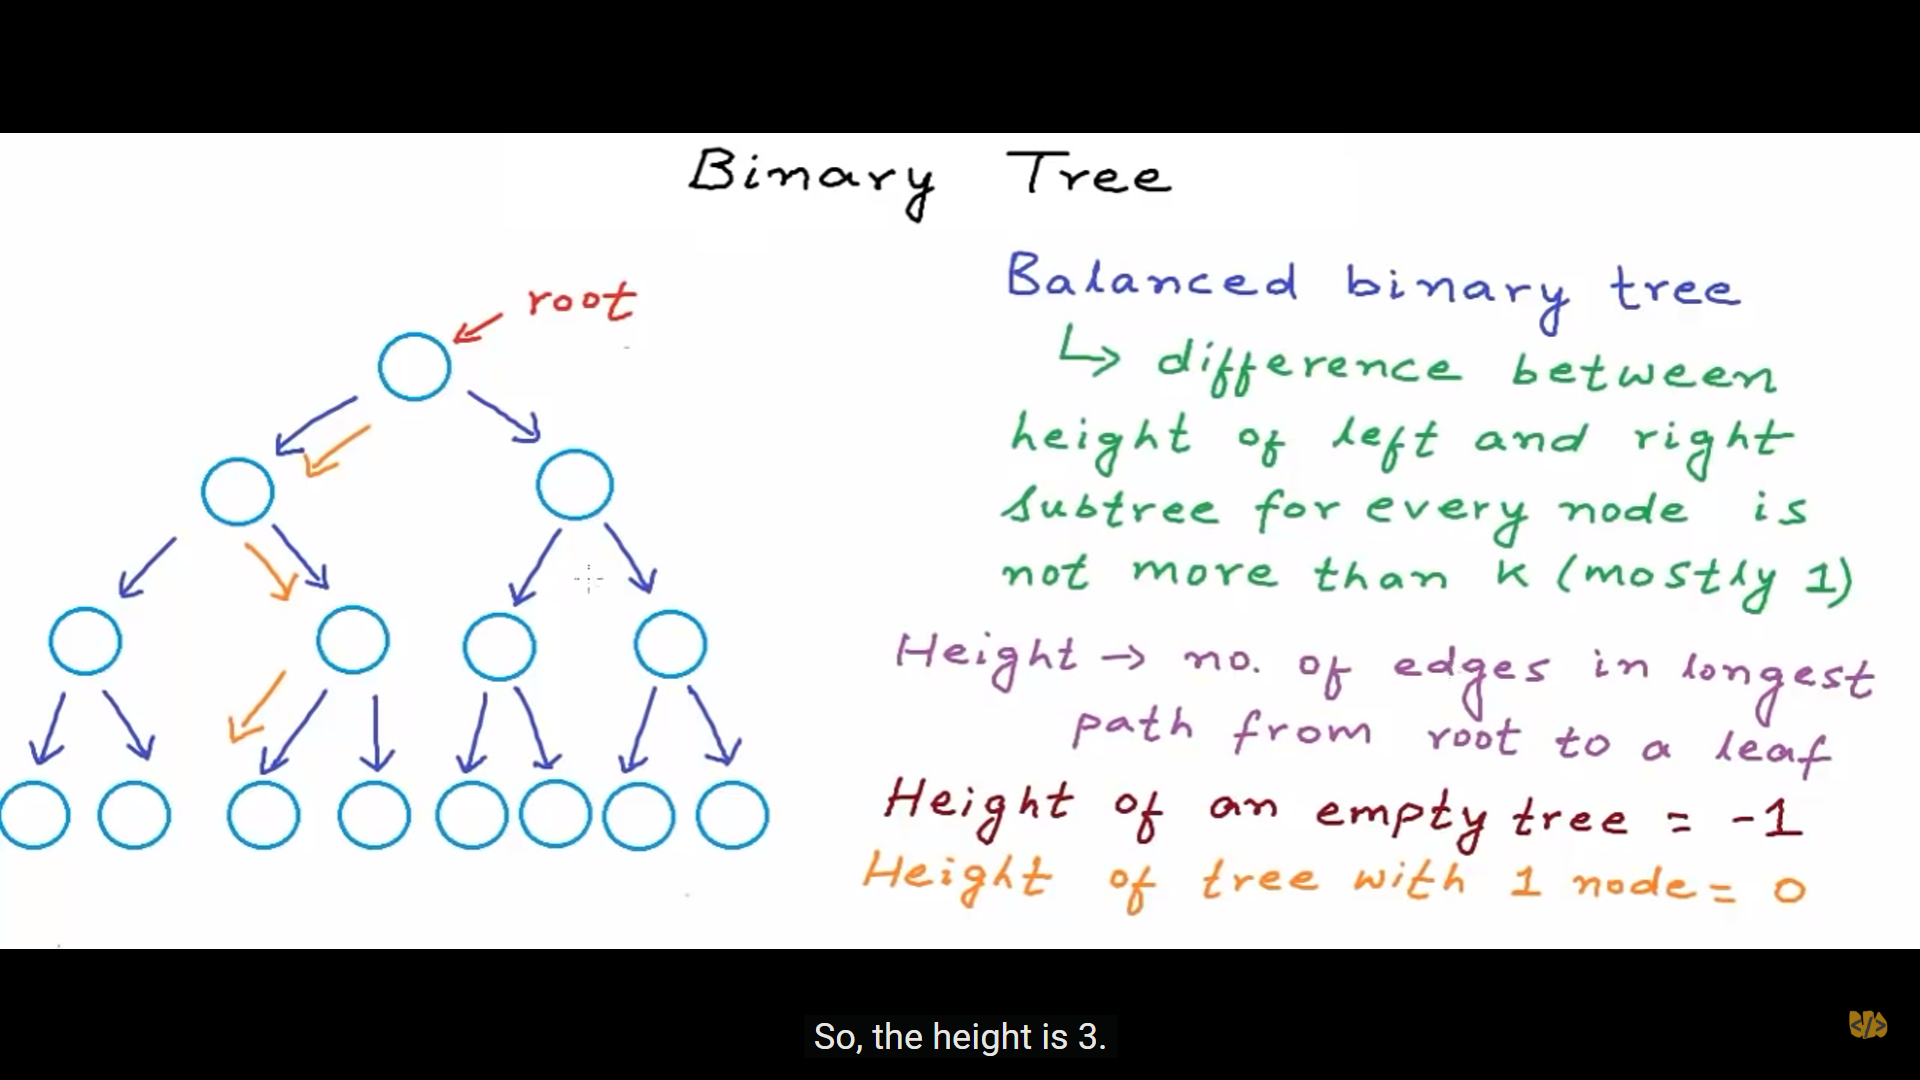 Binary Tree
root
Balanced binary tree
↳ difference between
height of left and right
subtree for every node is
not more than k (mostly 1)
Height → no. of edges in longest
path from root to a leaf
Height of an empty tree = -1
Height of tree with 1 node = 0
So, the height is 3.